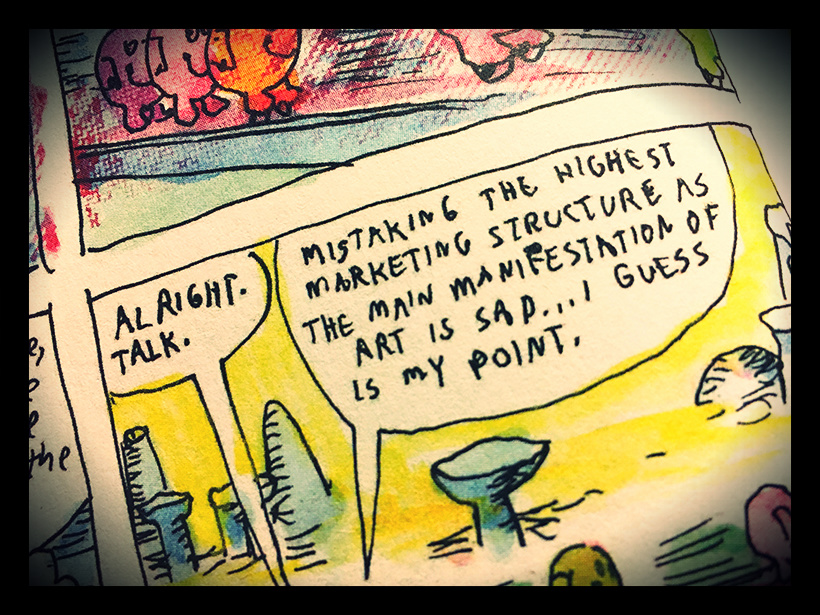 ALRIGHT.
TALK.
MISTAKING THE HIGHEST
MARKETING STRUCTURE AS
THE MAIN MANIFESTATION OF
ART IS SAD...I GUESS
IS MY POINT.
the